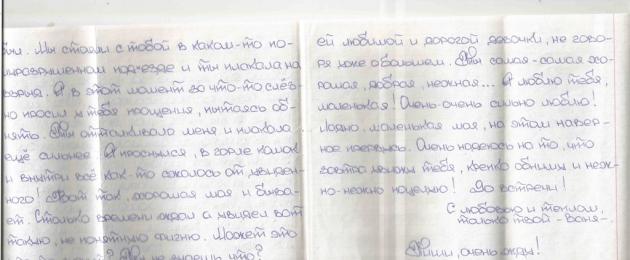 Мы стояли с тобой в каком-то по-
лразрушенном подъезде и ты плакала на
взрыд. Я в этот момент за что-то слёз-
но просил у тебя прощения, пытаясь об-
нять. Ты отталкивала меня и плакала
ещё сильнее. Я проснулся, в горле комок
и внутри всё как-то сжалось от увиден-
ного! Вот так, хорошая моя и быва-
ет. Столько времени ждал а увидел вот
такую, не понятную фигню. Может это
не знаешь что?
ей любимой и дорогой девочки, не гово-
ря уже о большем. Ты самая-самая хо-
рошая, добрая, нежная... Я люблю тебя,
маленькая! Очень-очень сильно люблю!
Ладно, маленькая моя, на этом навер-
ное прервусь. Очень надеюсь на то, что
завтра увижу тебя, крепко обниму и неж-
но-нежно поцелую! До встречи!
С любовью и теплом,
только твой - Ваня-.
Пиши, очень жду!